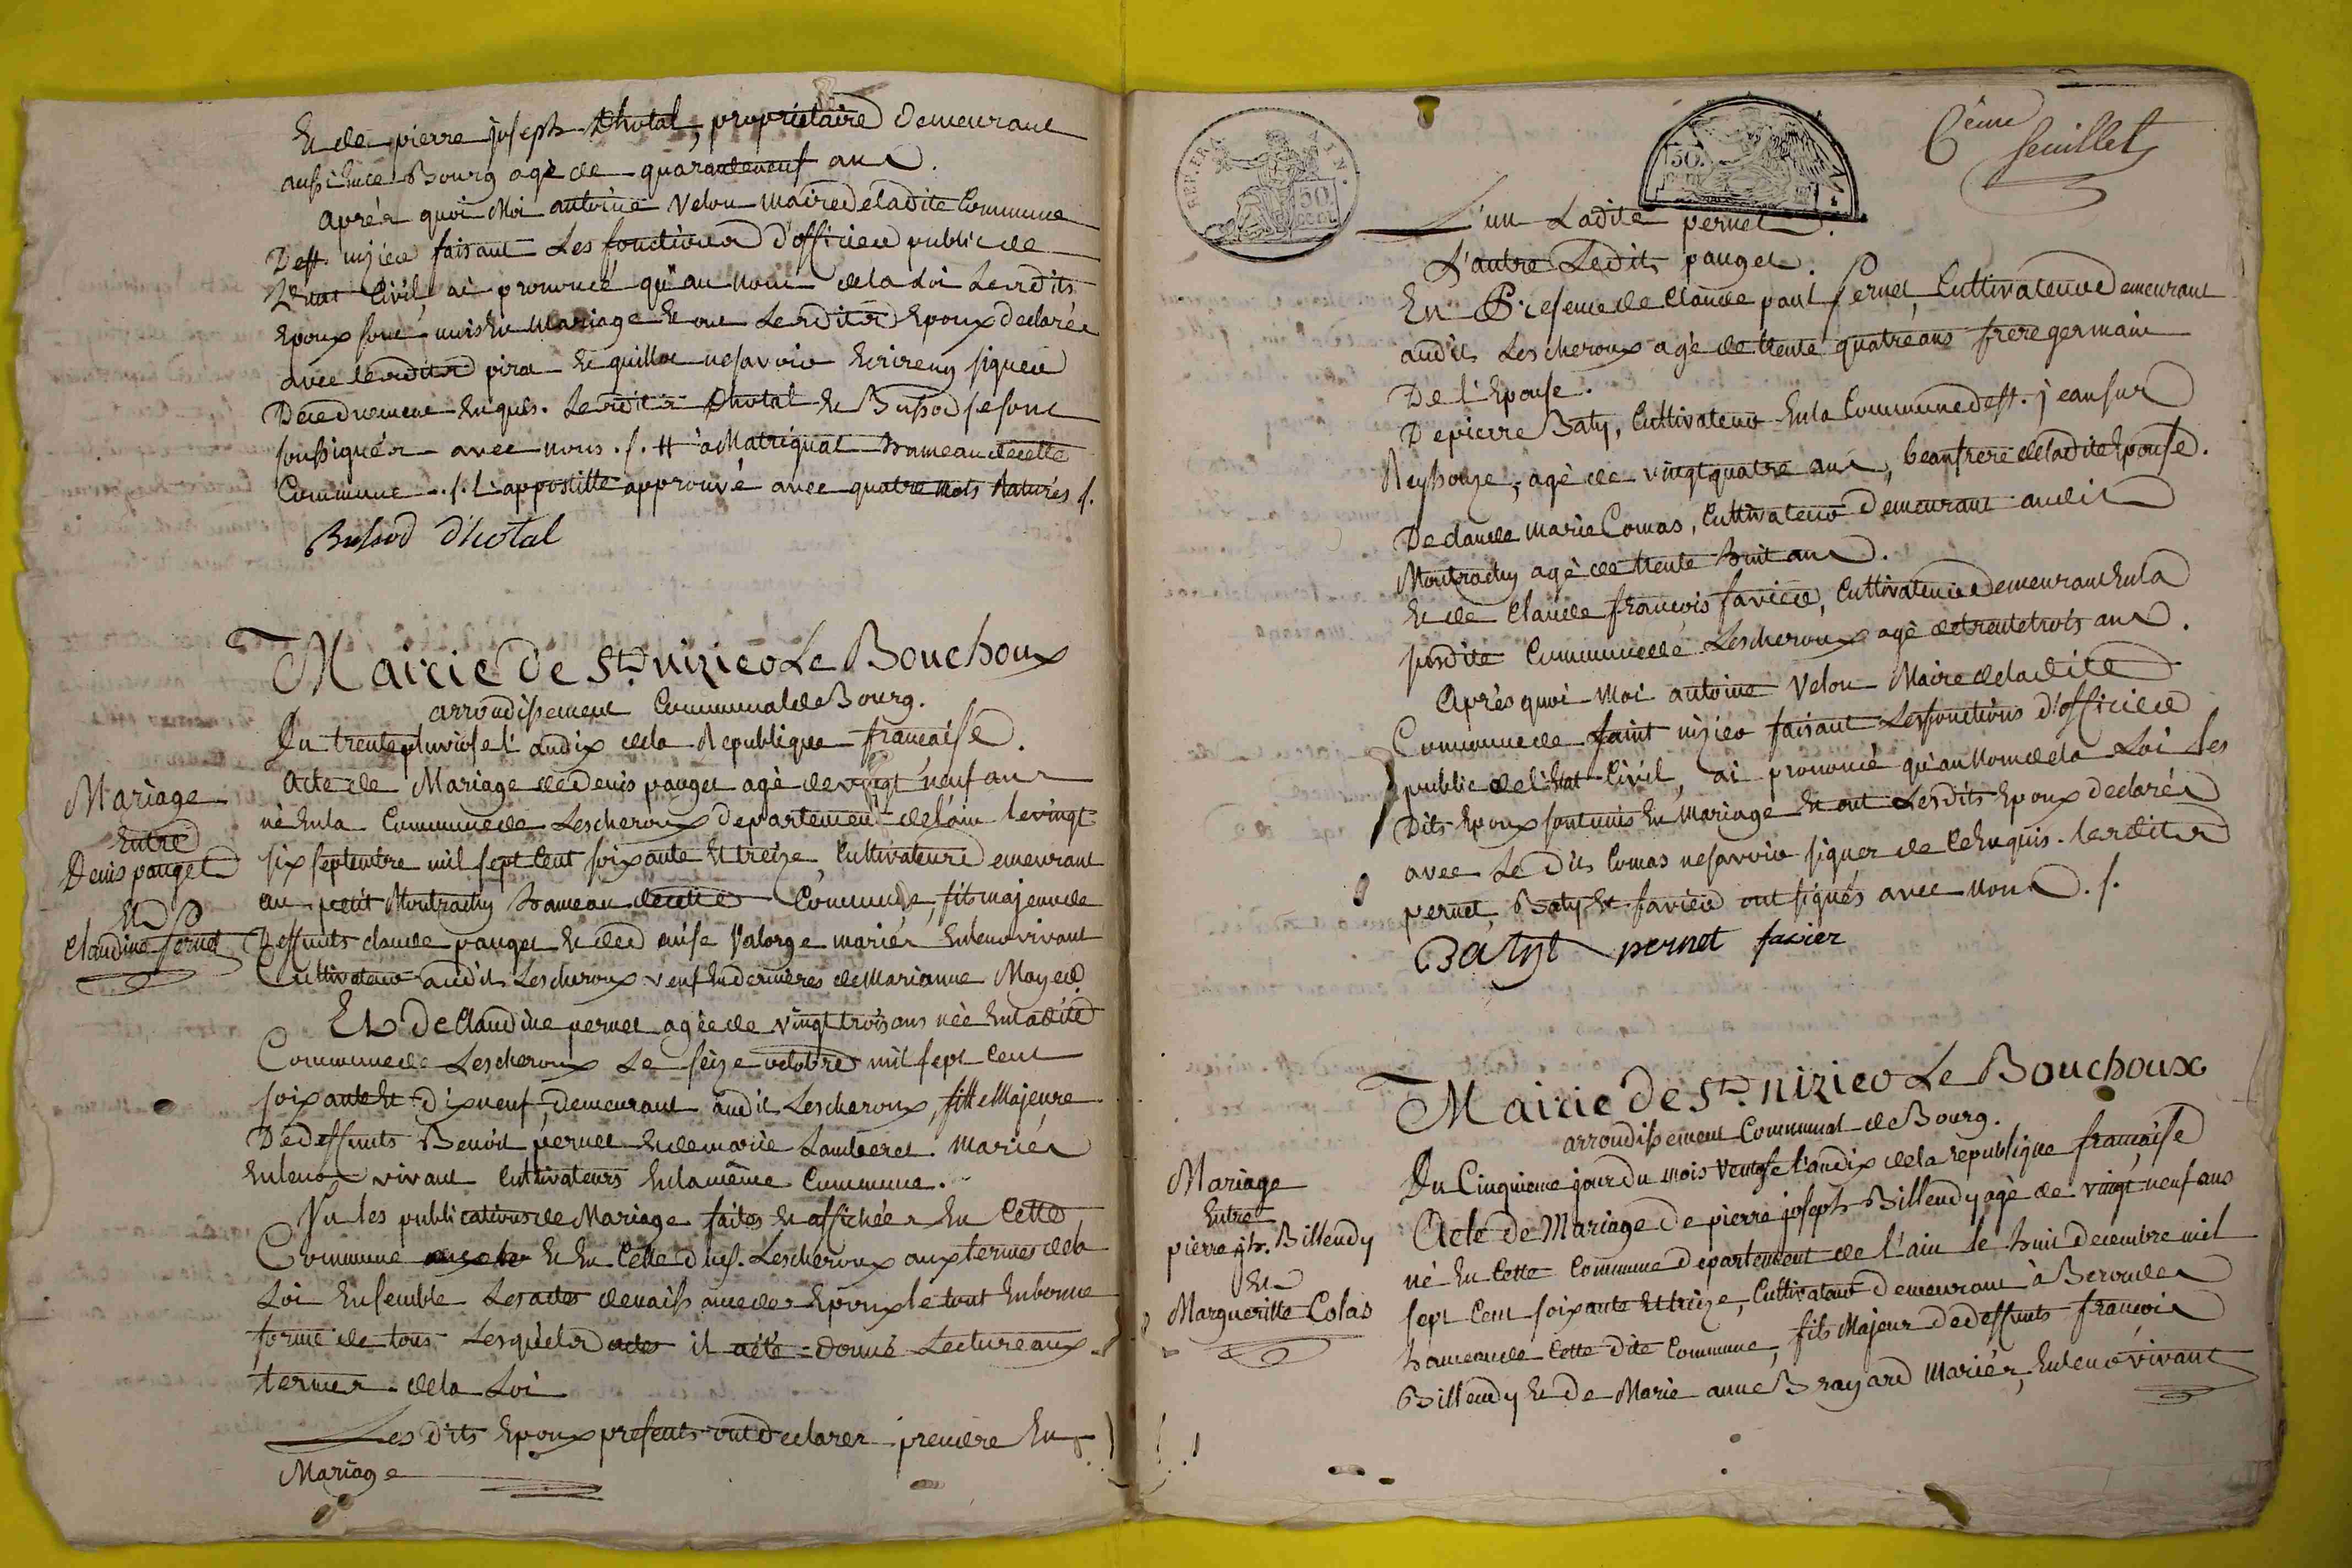 Et de pierre joseph Dhotal, propriétaire demeurant
aussi audit Bourg agé de quaranteneuf ans.
après quoi Moi antoine Velon maire de ladite Commune
De st. nizier faisant Les fonctions d'officier public de
L'Etat Civil, ai prononcé qu'au Nom de la Loi Lesdits
Epoux sont unis En Mariage Et ont Lesdits Epoux declarés
avec lesdits Et quillot ne savoir Ecrire ny signer
De ce dument Enquis. Lesdits Dhotal Et Bussod se sont
soussignés avec nous ./. # à Matriguat hameau de cette
Commune ./. L'appostille approuvé avec quatre mots Raturés ./.
Bussod d'hotal
Mairie de St. nizier Le Bouchoux
arrondissement Communal de Bourg.
Du trente pluviose l'an dix de la Republique francaise.
acte de Mariage de Denis panget agé de vingt neuf ans
né En la Commune de Lescheroux departement de l'ain le vingt
six septembre mil sept Cent soixante Et treize, Cultivateur demeurant
au petit Montrachy hameau de cette Commune, fils majeur de
Deffunts claude panget Et de Valorge mariés En leur vivant
Cultivateurs audit Lescheroux veuf En dernieres de Marianne Moyed
Mariage
Entre
Denis panget
Et
Claudine pernet
Et De Claudine pernet agée de vingt trois ans née En ladite
Commune de Lescheroux Le seize octobre mil sept cent
soixante Et dix neuf, demeurant audit Lescheroux, fille Majeure
De deffunts Benoit pernet Et de marie Lamberet mariés
En leur vivant Cultivateurs En la même Commune.
Vu les publications de Mariage faites Et affichées En Cette
Commune Et En Celle dud. Lescheroux aux termes de la
Loi Ensemble Les actes de naissance des Epoux le tout En bonne
forme de tous Lesquels actes il a été donné Lecture aux
termes de la Loi
Les dits Epoux presents ont declarer prendre En
Mariage
6ème feuillet
REP. FRA.
50 cent.
50 cent
L'un Ladite pernet.
L'autre Ledit panget.
En Presence de Claude paul pernet, Cultivateur Demeurant
audit Lescheroux agé de trente quatre ans frere germain
De l'Epouse.
De pierre Baty, Cultivateur En la Commune de st. jean sur
Reyssouze, agé de vingt quatre ans, beaufrere de ladite Epouse.
De claude marie Comas, Cultivateur demeurant audit
Montrachy agé de trente huit ans.
Et de Claude francois favier, Cultivateur demeurant En la
susdite Commune de Lescheroux agé de trente trois ans.
Après quoi Moi antoine Velon Maire de ladite
Commune de saint nizier faisant Les fonctions d'officier
public de l'Etat Civil, ai prononcé qu'au Nom de la Loi Les
Dits Epoux sont unis En Mariage Et ont Lesdits Epoux declarés
avec Le dit Comas ne savoir signer de Ce Enquis. Lesdits
pernet, Baty Et favier ont signés avec nous ./.
Batyt pernet favier
Mairie de St. nizier Le Bouchoux
arrondissement Communal de Bourg.
Du Cinquieme jour du mois Ventose l'an dix de la republique française
Acte de Mariage de pierre joseph Billendy agé de vingt neuf ans
né En Cette Commune departement de l'ain le huit decembre mil
sept Cent soixante Et treize, Cultivateur demeurant à Beroudes
hameau de Cette dite Commune, fils Majeur de deffunts francois
Billendy Et de Marie anne Brayard Mariés, En leur vivant
Mariage
Entre
pierre jh. Billendy
Et
Margueritte Colas